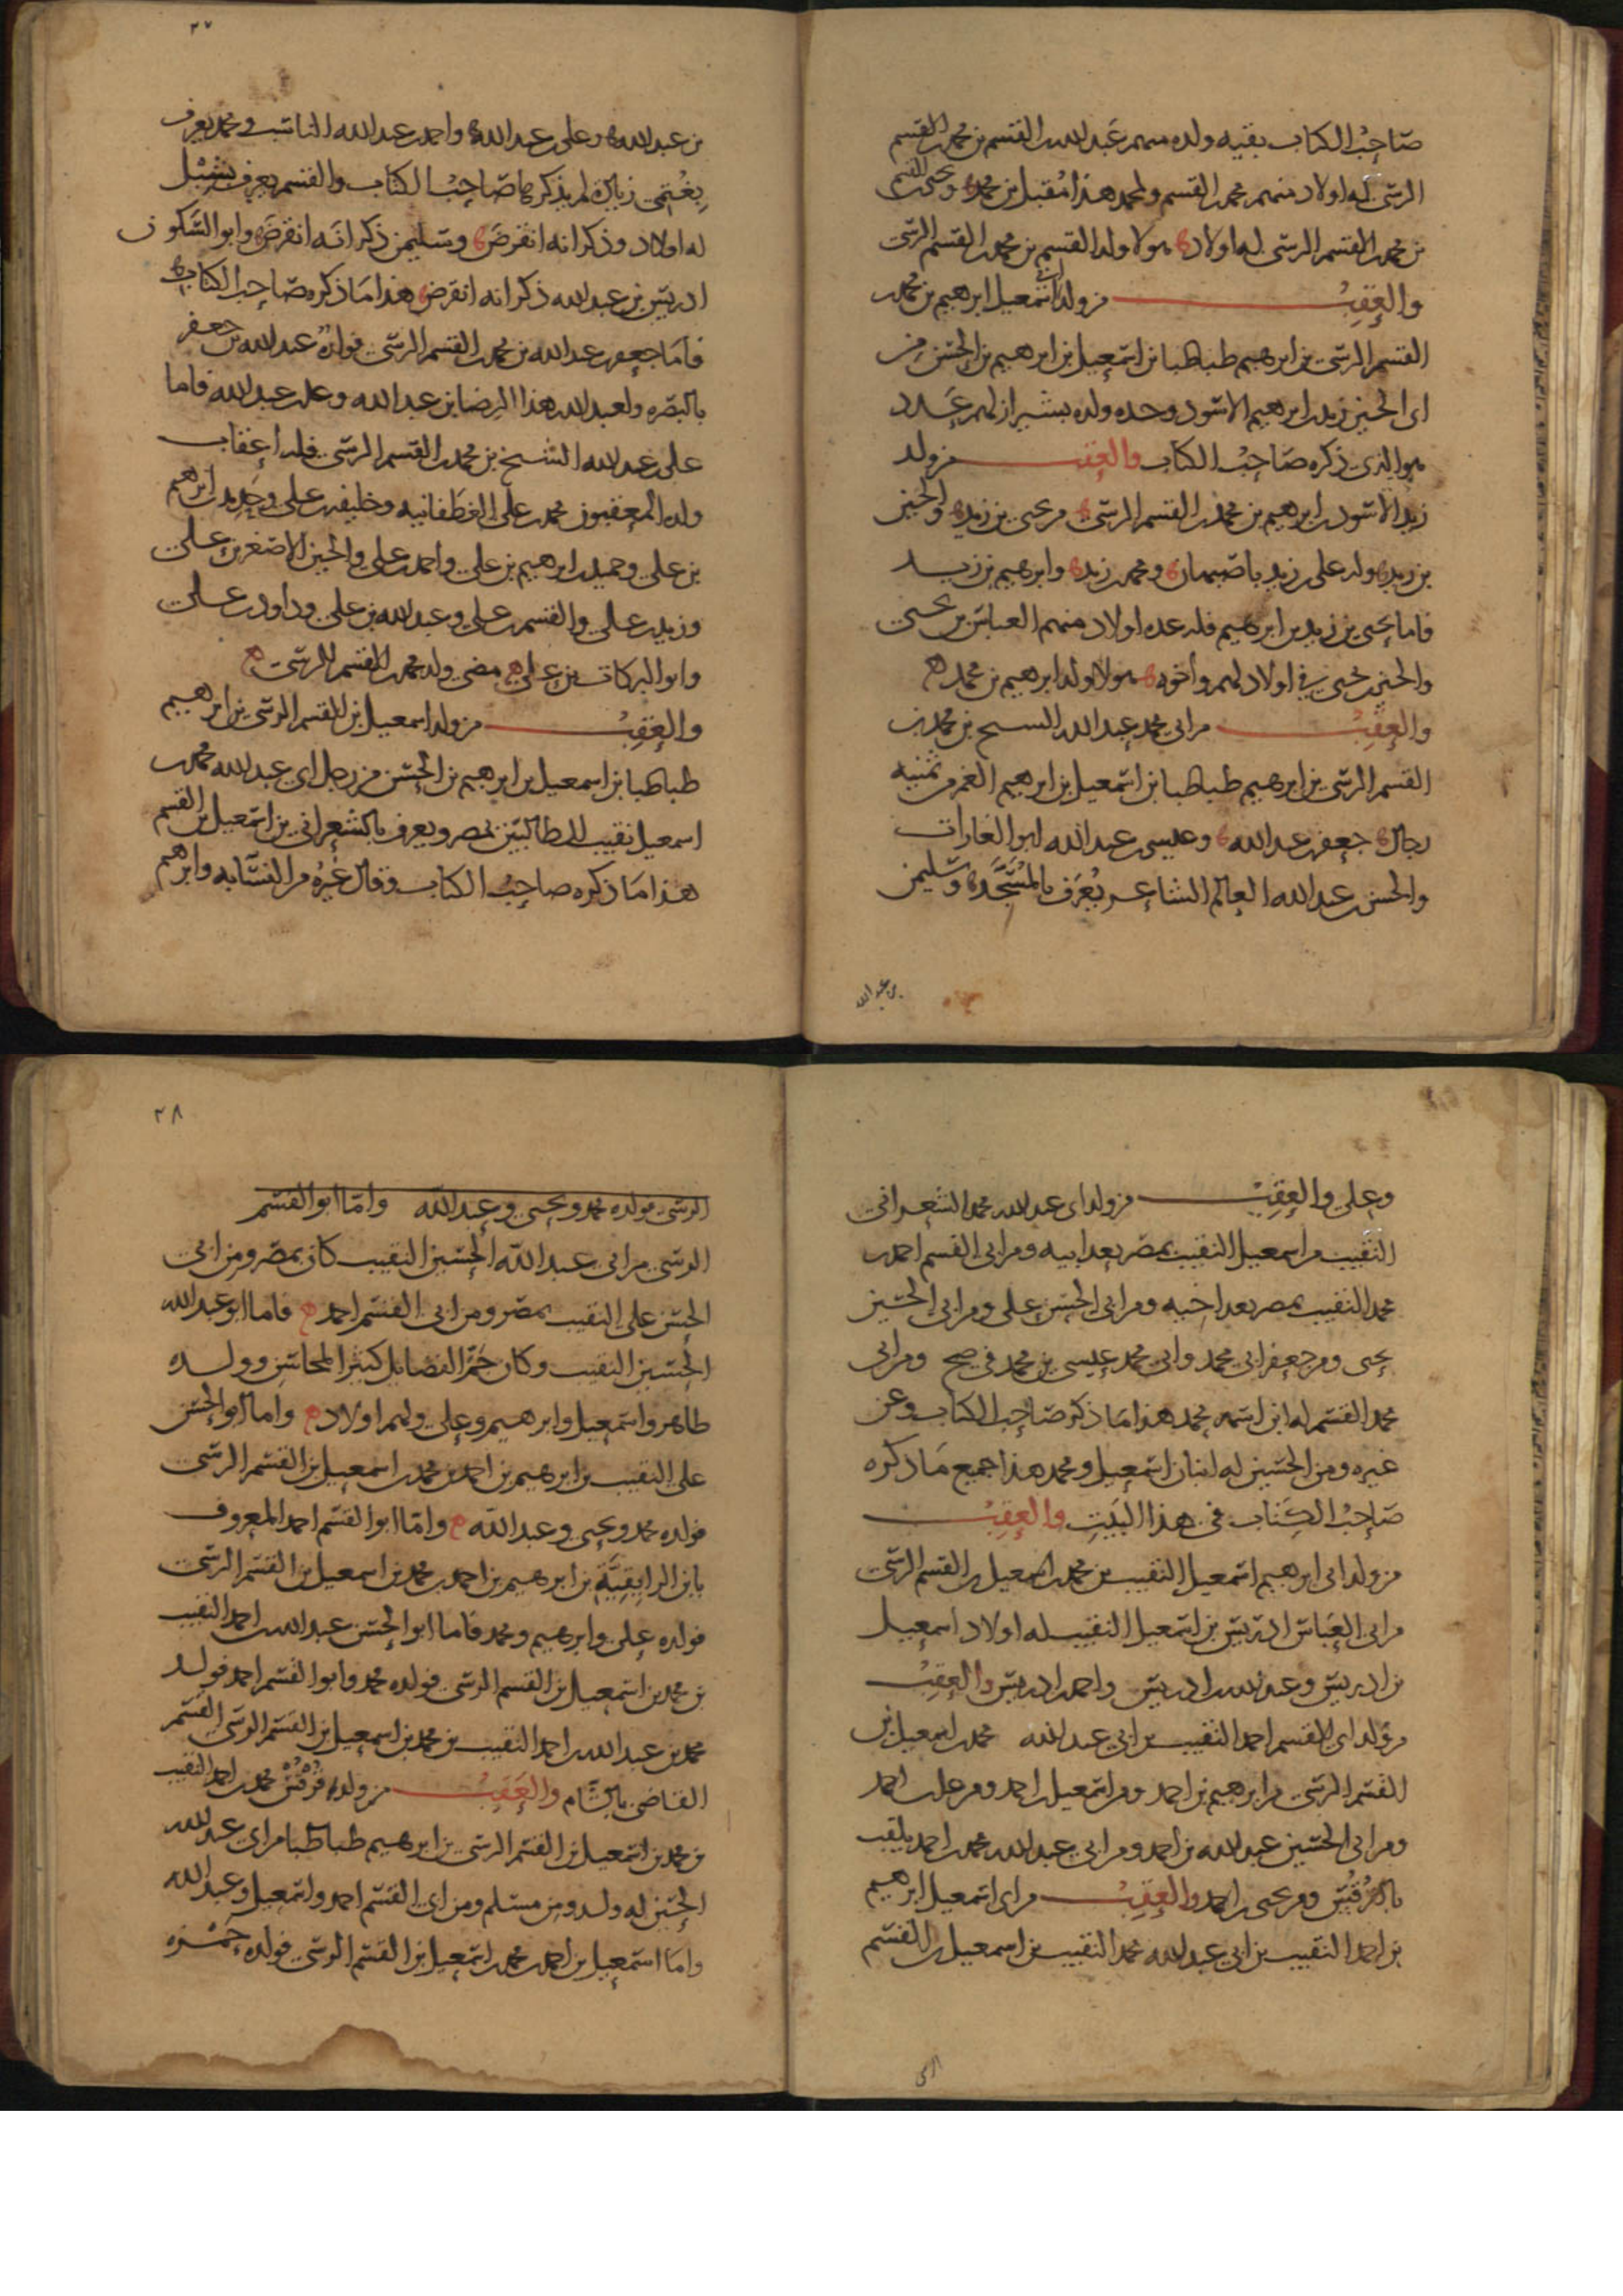 صاحب الكتاب بقيه ولده منهم عبد الله بن القسم بن محمد بن القسم
الرسى له اولاد منهم محمد بن القسم ولمحمد هذا مقبل بن محمد ويحيى بن القسم
بن محمد بن القسم الرسى له اولاد هولا ولد القسم بن محمد بن القسم الرسى
والعقب من ولد اسمعيل بن ابرهيم بن محمد بن
القسم الرسى بن ابرهيم طباطبا بن اسمعيل بن ابرهيم بن الحسن من
ابى الحسين زيد بن ابرهيم الاسود وحده ولده بشيراز لهم عدد
هو الذى ذكره صاحب الكتاب والعقب من ولد
زيد الاسود بن ابرهيم بن محمد بن القسم الرسى من يحيى بن زيد والحسين
بن زيد وله على بن زيد باصبهان ومحمد بن زيد وابرهيم بن زيد
فاما يحيى بن زيد بن ابرهيم فله عده اولاد منهم العباس بن يحيى
والحسين بن يحيى فى اولاد لهم واخوه هولا ولد ابرهيم بن محمد
والعقب من ابى محمد عبد الله الشيخ بن محمد بن
القسم الرسى بن ابرهيم طباطبا بن اسمعيل بن ابرهيم الغمر من ثمنيه
رجال جعفر بن عبد الله وعيسى بن عبد الله ابو الغارات
والحسن بن عبد الله العالم الشاعر يعرف وسليمن
بن عبد الله
٣٧
بن عبد الله وعلى بن عبد الله واحمد بن عبد الله الناسب ومحمد يعرف
زياده لم يذكرها صاحب الكتاب والقسم يعرف بشبل
له اولاد وذكر انه انقرض وسليمن ذكر انه انقرض وابو السكون
ادريس بن عبد الله ذكر انه انقرض هذا ما ذكره صاحب الكتاب
فاما جعفر بن عبد الله بن محمد بن القسم الرسى فولده عبد الله بن جعفر
بالبصره ولعبد الله هذا الرضا بن عبد الله وعلى بن عبد الله فاما
على بن عبد الله الشيخ بن محمد بن القسم الرسى فله اعقاب
ولده المعقبون محمد بن على الغطفانيه وخليفه بن على بن ابرهيم
بن على وحميد بن ابرهيم بن على واحمد بن على والحسين الاصغر بن على
وزيد بن على والقسم بن على وعبد الله بن على وداود بن على
وابو البركات بن على مضى ولد محمد بن القسم الرسى
والعقب من ولد اسمعيل بن القسم الرسى بن ابرهيم
طباطبا بن اسمعيل بن ابرهيم بن الحسن من رجل ابى عبد الله محمد بن
اسمعيل نقيب الطالبيين بمصر ويعرف بالشعرانى بن اسمعيل بن القسم
هذا ما ذكره صاحب الكتاب وقال غيره من النسابه وابرهيم
وعلى والعقب من ولد ابى عبد الله محمد الشعرانى
النقيب من اسمعيل النقيب بمصر بعد ابيه ومن ابى القسم احمد بن
محمد النقيب بمصر بعد اخيه ومن ابى الحسن على ومن ابى الحسين
يحيى ومن جعفر ابى محمد وابى محمد عيسى بن محمد فى صح ومن ابى
محمد القسم له ابن اسمه محمد هذا ما ذكر صاحب الكتاب وعن
غيره ومن الحسين له ابنان اسمعيل ومحمد هذا جميع ما ذكره
صاحب الكتاب فى هذا البيت والعقب
من ولد ابى ابرهيم اسمعيل النقيب بن محمد بن اسمعيل بن القسم الرسى
من ابى العباس ادريس بن اسمعيل النقيب له اولاد اسمعيل
بن ادريس وعبد الله بن ادريس واحمد بن ادريس والعقب
من ولد ابى القسم احمد النقيب بن ابى عبد الله محمد بن اسمعيل بن
القسم الرسى من ابرهيم بن احمد ومن اسمعيل بن احمد ومن على بن احمد
ومن ابى الحسين عبد الله بن احمد ومن ابى عبد الله محمد بن احمد يلقب
بالقرقيش ومن يحيى بن احمد والعقب من ابى اسمعيل ابرهيم
بن احمد النقيب بن ابى عبد الله محمد النقيب بن اسمعيل بن القسم
الرسى
٣٨
الرسى فولده محمد ويحيى وعبد الله واما ابو القسم
الرسى من ابى عبد الله الحسين النقيب كان بمصر ومن ابى
الحسن على النقيب بمصر ومن ابى القسم احمد فاما ابو عبد الله
الحسين النقيب وكان جم الفضايل كثير المحاسن وولده
طاهر واسمعيل وابرهيم وعلى ولهم اولاد واما ابو الحسن
على النقيب بن ابرهيم بن احمد بن محمد بن اسمعيل بن القسم الرسى
فولده محمد ويحيى وعبد الله واما ابو القسم احمد المعروف
بابن بن ابرهيم بن احمد بن محمد بن اسمعيل بن القسم الرسى
فولده على وابرهيم ومحمد فاما ابو الحسن عبد الله بن احمد النقيب
بن محمد بن اسمعيل بن القسم الرسى فولده محمد وابو القسم احمد فولد
محمد بن عبد الله بن احمد النقيب بن محمد بن اسمعيل بن القسم الرسى القسم
القاضى بالشام والعقب من ولد قرقش محمد بن احمد النقيب
بن محمد بن اسمعيل بن القسم الرسى بن ابرهيم طباطبا من ابى عبد الله
الحسين له ولد ومن مسلم ومن ابى القسم احمد واسمعيل وعبد الله
واما اسمعيل بن احمد بن محمد بن اسمعيل بن القسم الرسى فولده حمزه